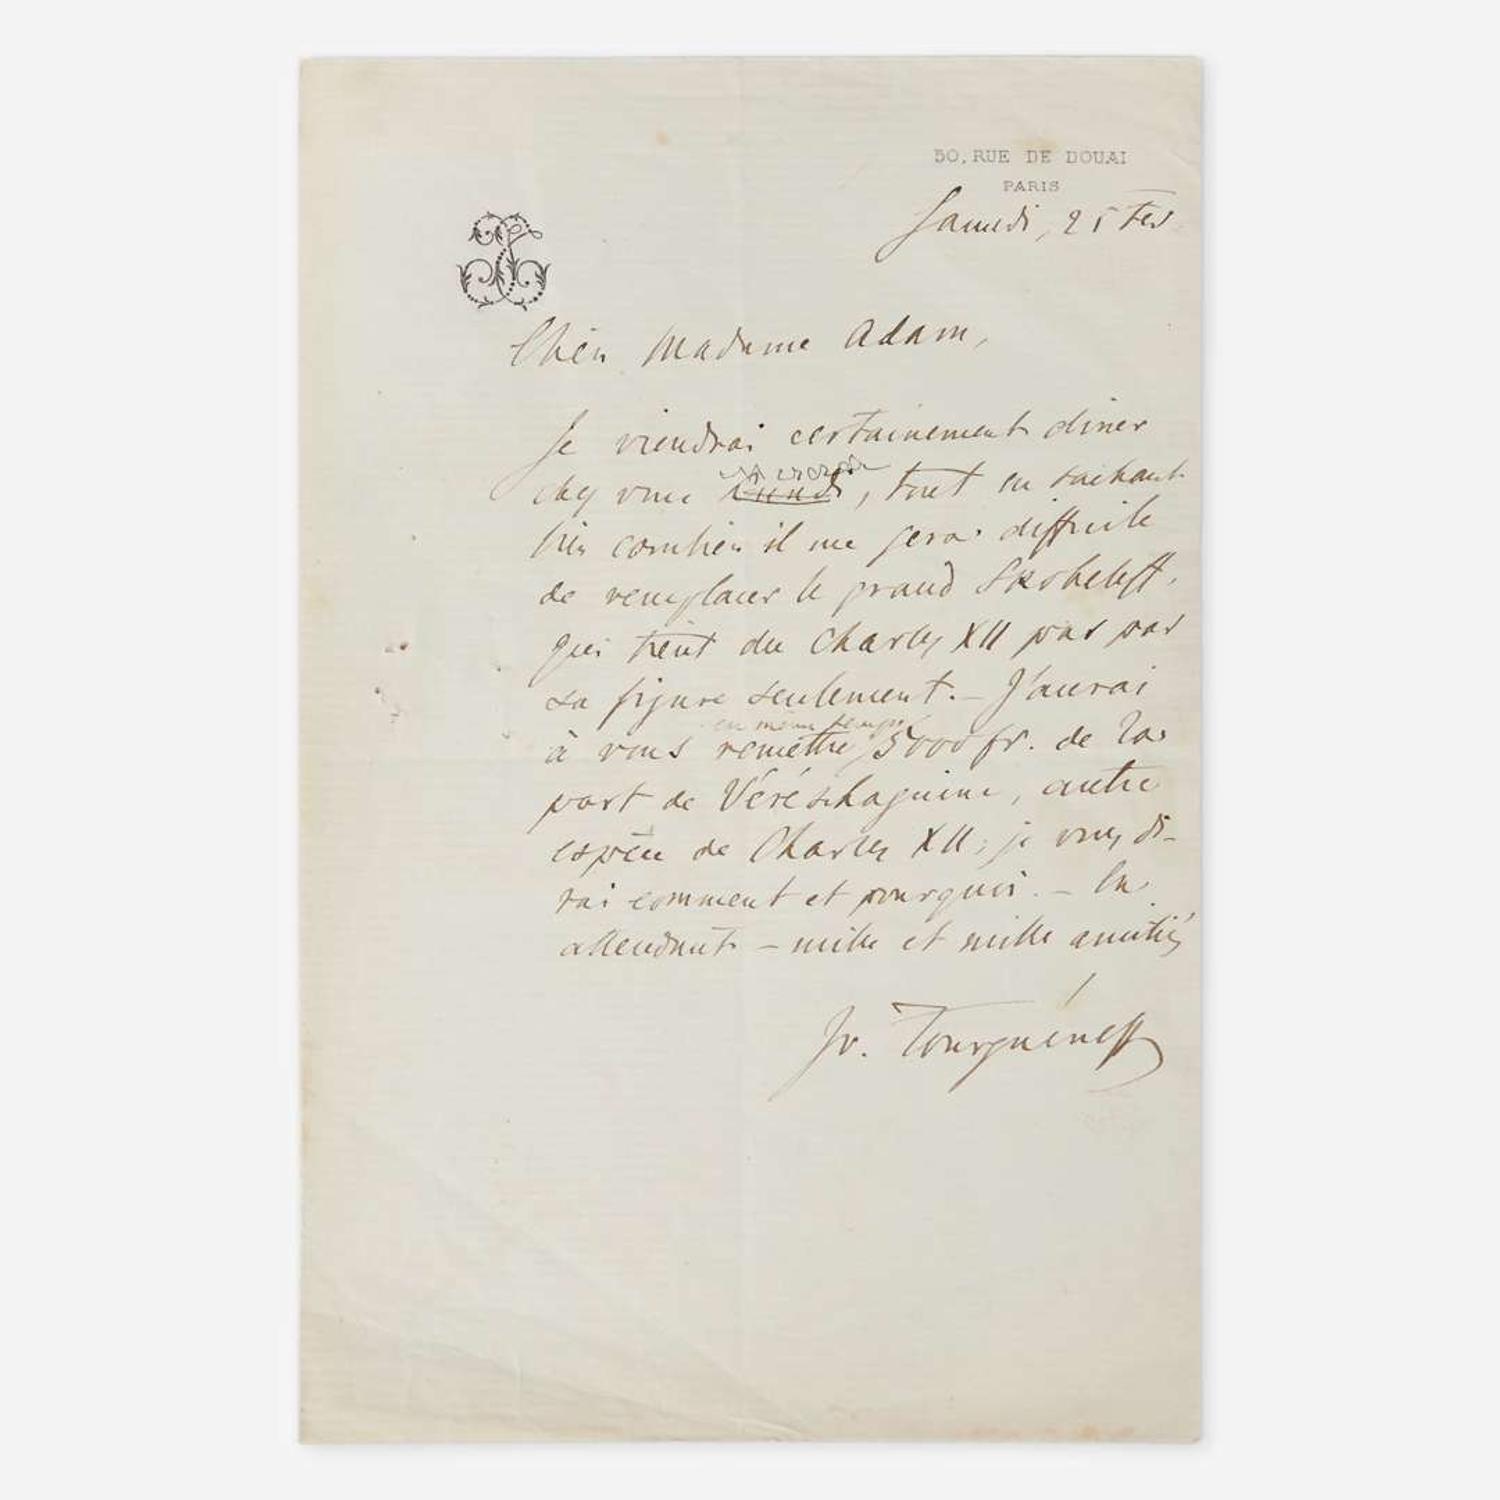 50, RUE DE DOUAI
PARIS
Samedi, 25 Fev
Chère Madame Adam,
Je viendrai certainement diner
mercredi
chez vous lundi, tout en sachant
bien combien il me sera difficile
de remplacer le grand Skobeleff,
qui tient du Charles XII pas par
sa figure seulement. – J'aurai
en même temps
à vous remettre 5000 fr. de la
part de Véréschaguine, autre
espèce de Charles XII; je vous di-
rai comment et pourquoi. – En
attendant – mille et mille amitiés
Iv. Tourguéneff